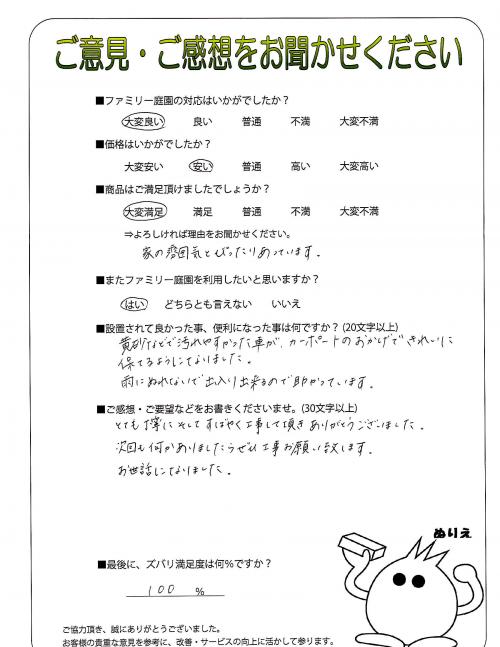 ご意見・ご感想をお聞かせください
■ファミリー庭園の対応はいかがでしたか？
大変良い 良い 普通 不満 大変不満
■価格はいかがでしたか？
大変安い 安い 普通 高い 大変高い
■商品はご満足頂けましたでしょうか？
大変満足 満足 普通 不満 大変不満
⇒よろしければ理由をお聞かせください。
家の雰囲気とぴったりあっています。
■またファミリー庭園を利用したいと思いますか？
はい どちらとも言えない いいえ
■設置されて良かった事、便利になった事は何ですか？(20文字以上)
黄砂などで汚れやすかった車が、カーポートのおかげできれいに
保てるようになりました。
雨にぬれないで出入り出来るので助かっています。
■ご感想・ご要望などをお書きくださいませ。(30文字以上)
とても丁寧にそしてすばやく工事して頂きありがとうございました。
次回も何かありましたらぜひ工事お願い致します。
お世話になりました。
ぬりえ
■最後に、ズバリ満足度は何％ですか？
100 %
ご協力頂き、誠にありがとうございました。
お客様の貴重な意見を参考に、改善・サービスの向上に活かして参ります。